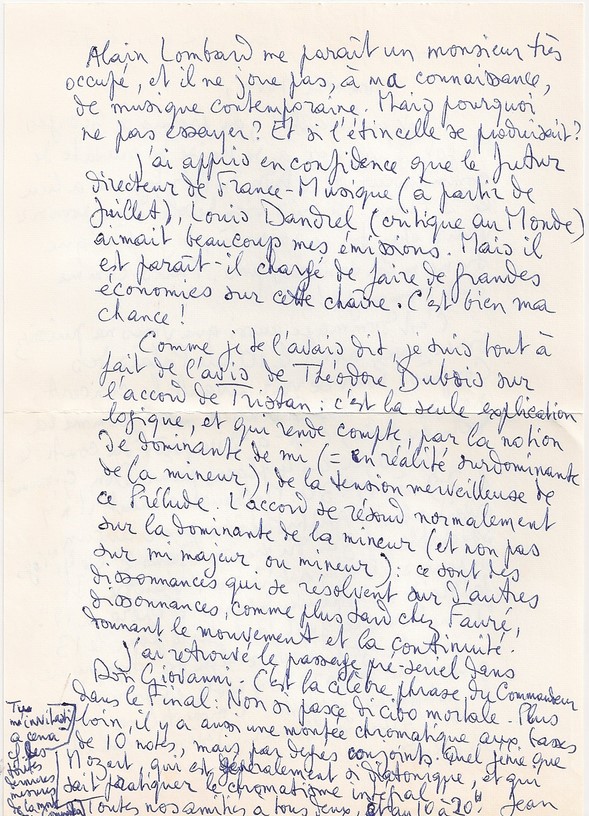 Alain Lombard me paraît un monsieur très
occupé, et il ne joue pas, à ma connaissance,
de musique contemporaine. Mais pourquoi
ne pas essayer? Et si l'étincelle se produisait?
J'ai appris en confidence que le futur
directeur de France-Musique (à partir de
Juillet), Louis Dandrel (critique au Monde)
aimait beaucoup mes émissions. Mais il
est paraît-il chargé de faire de grandes
économies sur cette chaîne. C'est bien ma
chance!
Comme je te l'avais dit, je suis tout à
fait de l'avis de Théodore Dubois sur
l'accord de Tristan: c'est la seule explication
logique, et qui rende compte, par la notion
de dominante de mi (= en réalité surdominante
de la mineur), de la tension merveilleuse de
ce Prélude. L'accord se résoud normalement
sur la dominante de la mineur (et non pas
sur mi majeur ou mineur): ce sont des
dissonnances qui se résolvent sur d'autres
dissonnances, comme plus tard chez Fauré,
donnant le mouvement et la continuité.
J'ai retrouvé le passage pré-sériel dans
Don Giovanni. C'est la célèbre phrase du Commandeur
dans le Final: Non si pasce di cibo mortale. Plus
loin, il y a aussi une montée chromatique aux basses
de 10 notes, mais par degrés conjoints. Quel génie que
Mozart, qui est généralement si diatonique, et qui
sait pratiquer le chromatisme intégral
Toutes nos amitiés à tous deux, au 10 à 20! Jean
Tu
m'invitasti
a cena